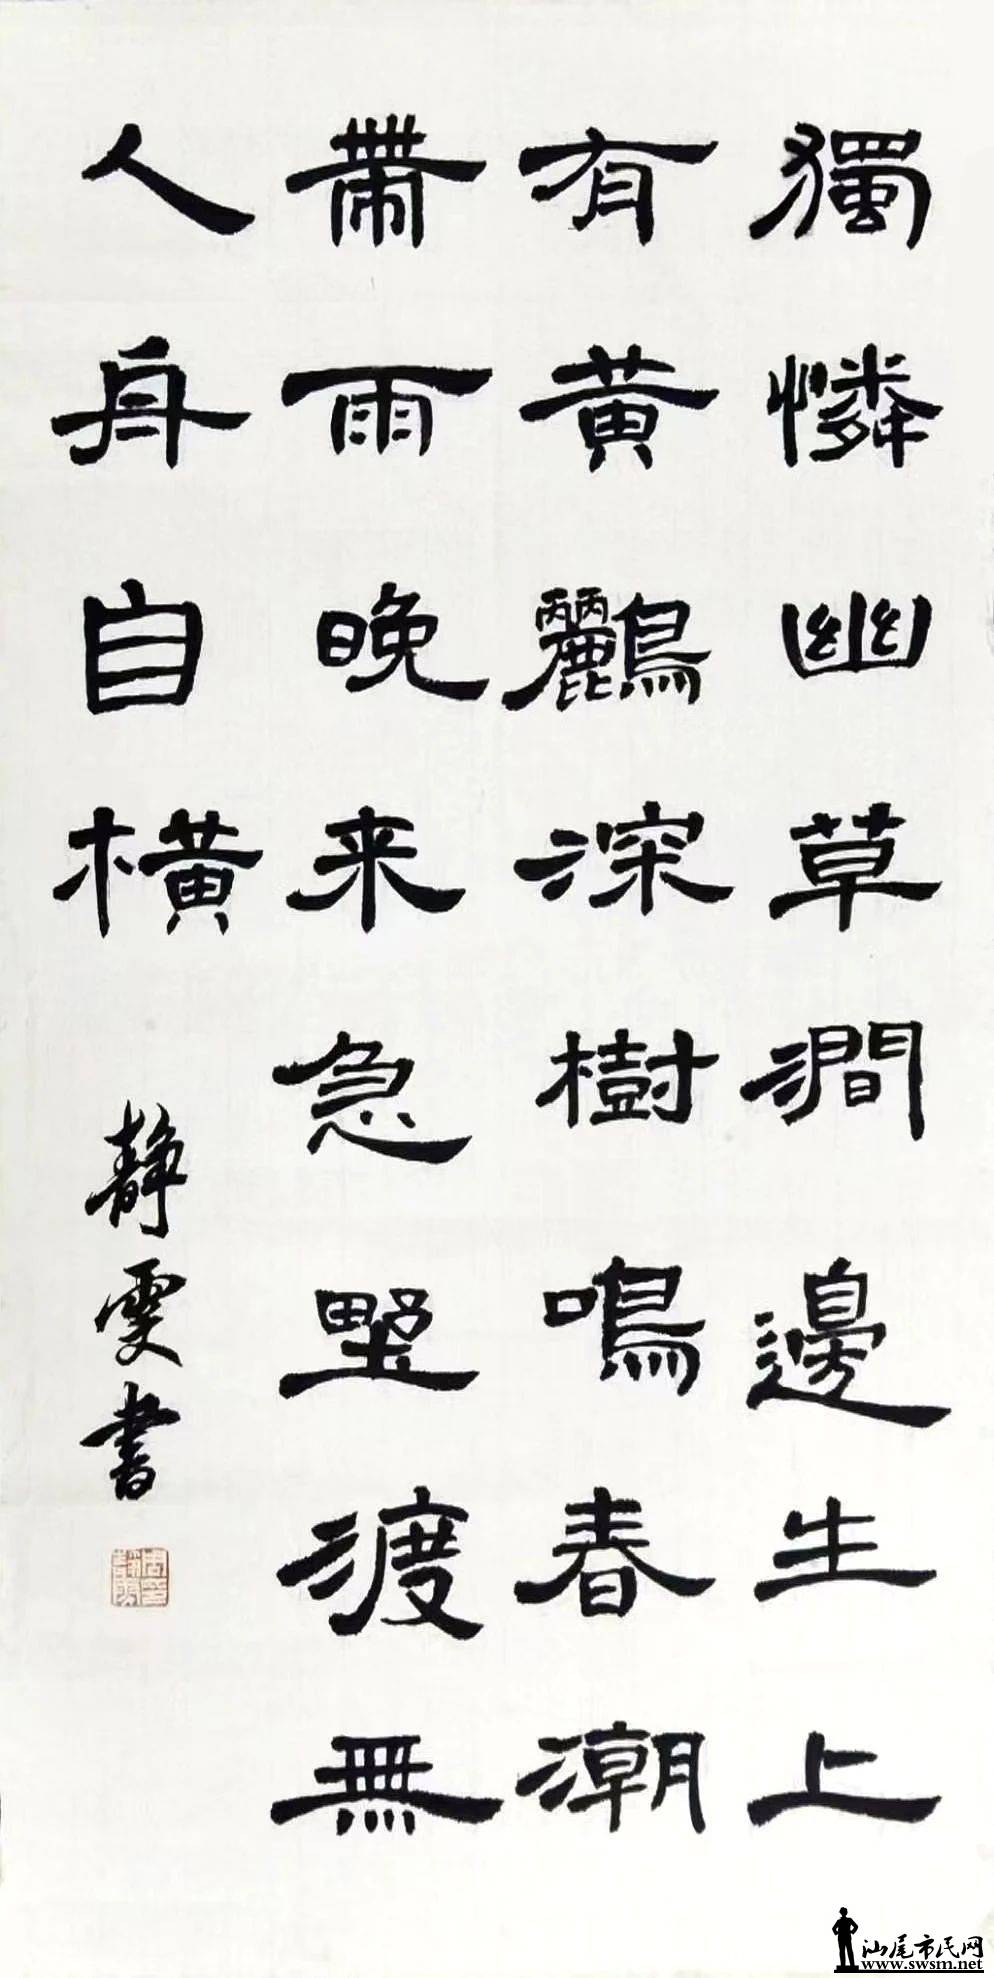 獨憐幽草澗邊生上
有黄鸝深樹鳴春潮
帶雨晚来急野渡無
人舟自横
靜雯書
汕尾市民网
www.swsm.net